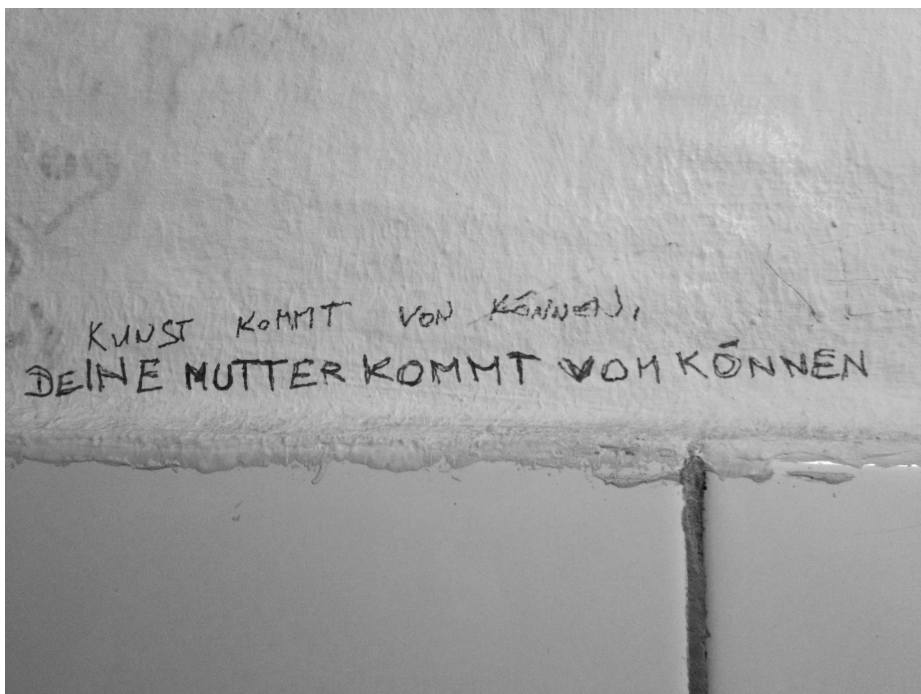 KUNST KOMMT VON KÖNNEN,
DEINE MUTTER KOMMT VOM KÖNNEN